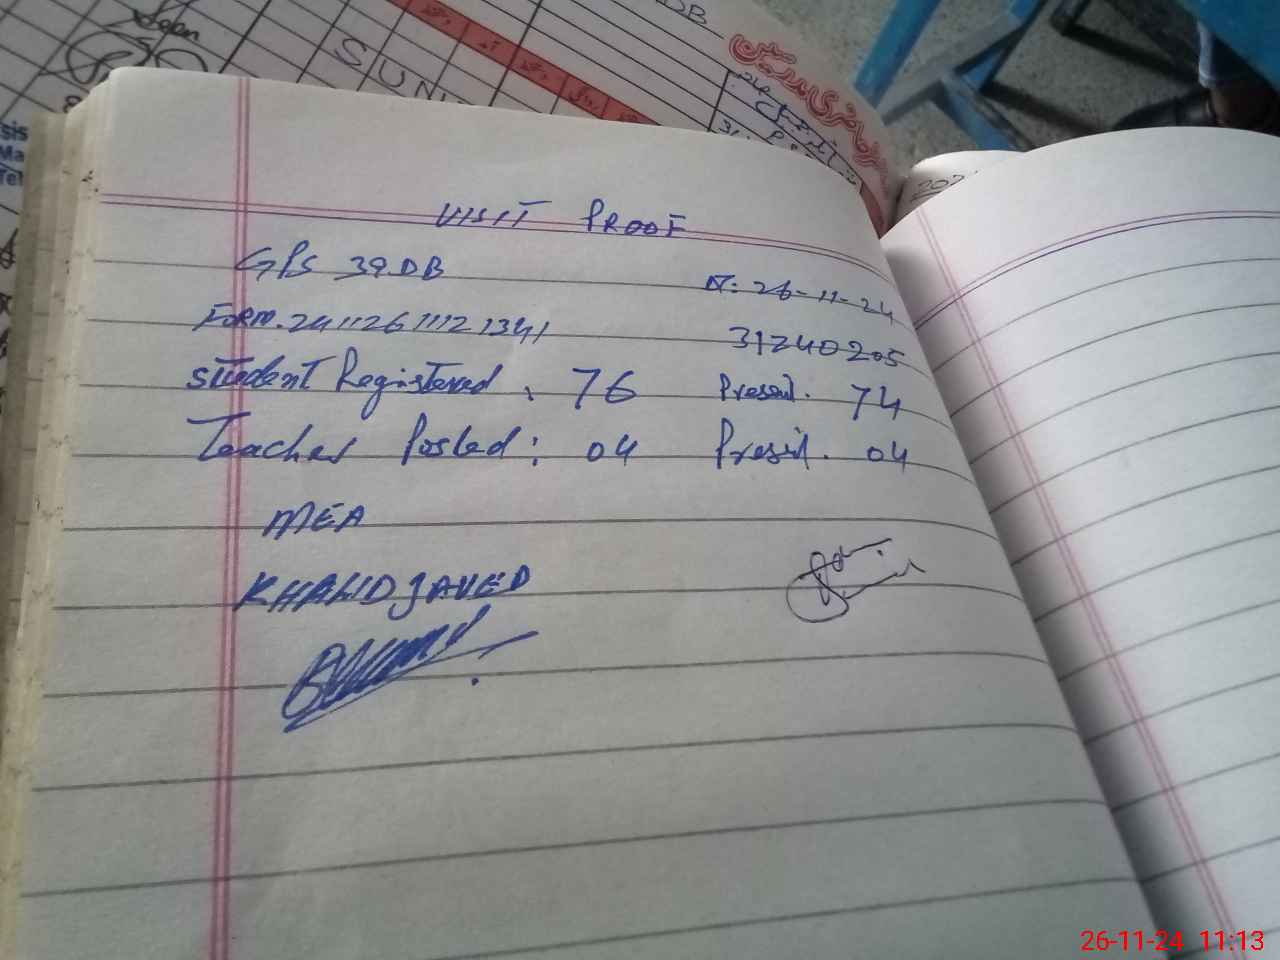 Seen
SUN
DB
حاضری مدرسین
VISIT PROOF
GPS 39.DB
DT: 26-11-24
FORM. 24112611121341
31240205
Student Registered : 76 Present. 74
Teacher Posted : 04 Present. 04
MEA
KHALID JAVED
26-11-24 11:13